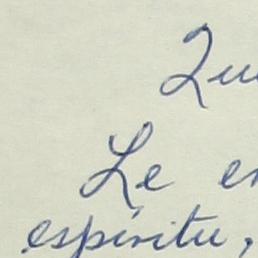 Qu
Le en
espíritu,